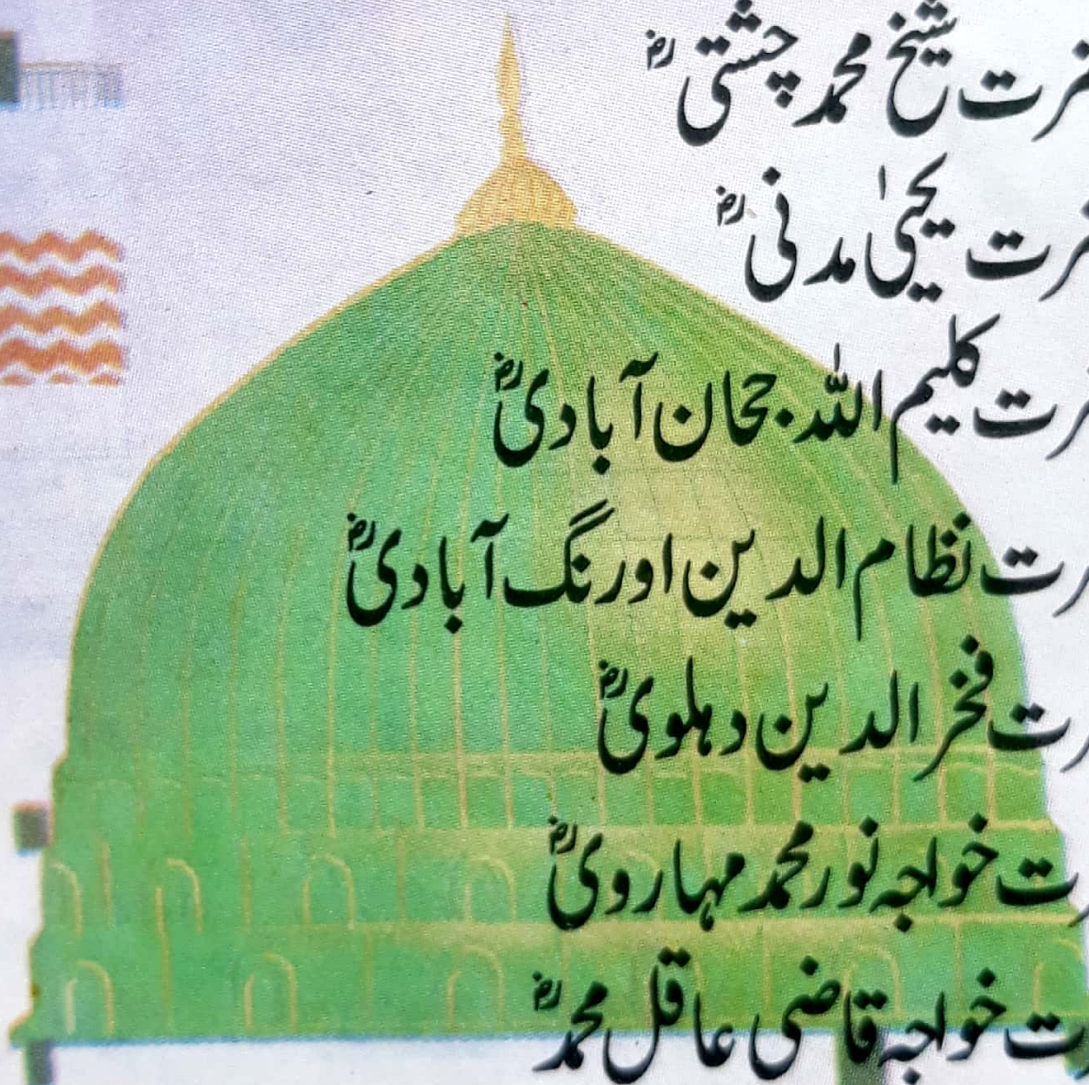 حضرت شیخ محمد چشتیؓ
حضرت یحییٰ مدنیؓ
حضرت کلیم اللہ جہان آبادیؓ
حضرت نظام الدین اورنگ آبادیؓ
حضرت فخر الدین دہلویؓ
حضرت خواجہ نور محمد مہارویؓ
حضرت خواجہ قاضی عاقل محمدؓ